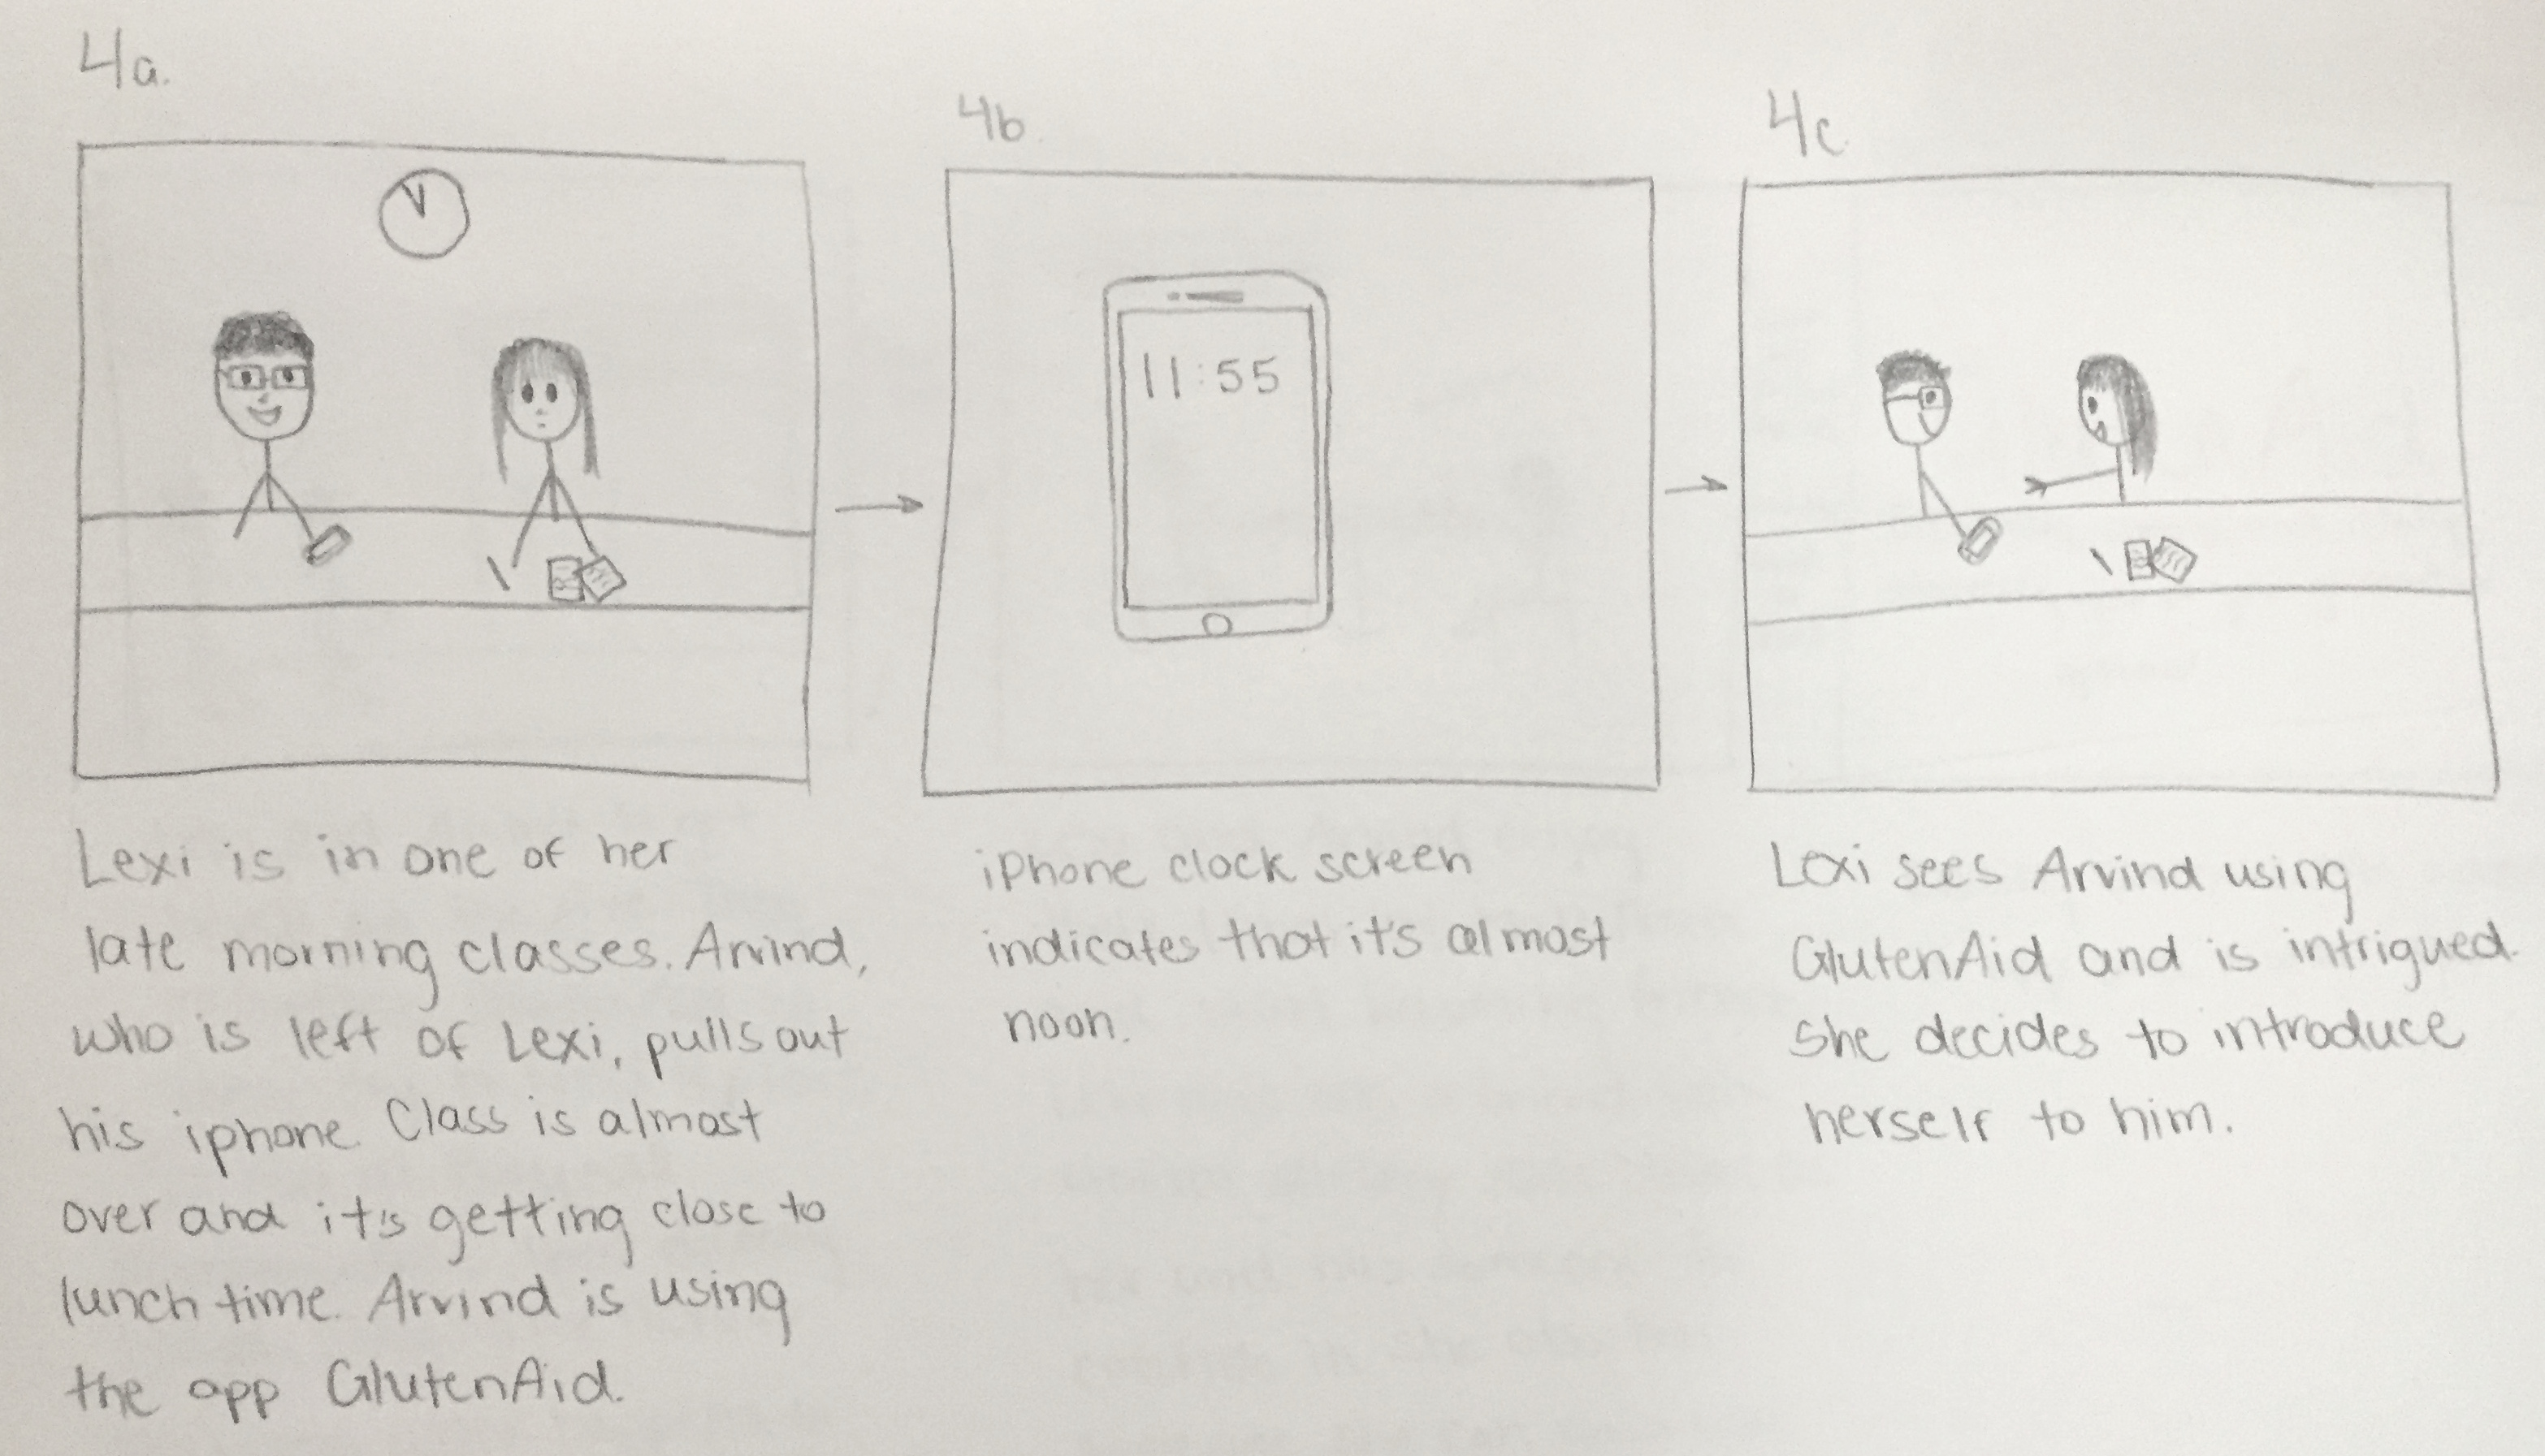 4a.
Lexi is in one of her
late morning classes. Arvind,
who is left of Lexi, pulls out
his iphone. Class is almost
over and it's getting close to
lunch time. Arvind is using
the app GlutenAid.
4b.
11:55
iPhone clock screen
indicates that it's almost
noon.
4c.
Lexi sees Arvind using
GlutenAid and is intrigued.
She decides to introduce
herself to him.